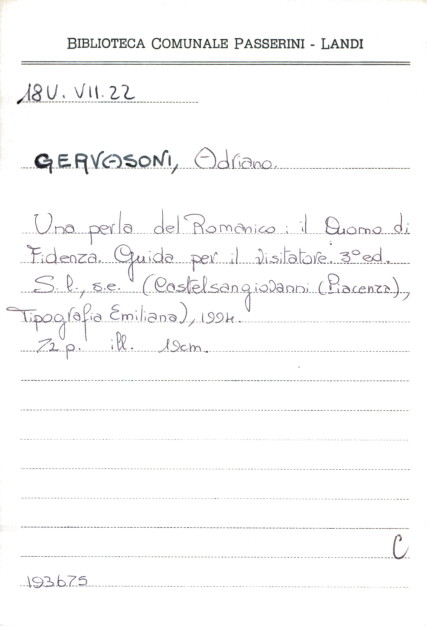 BIBLIOTECA COMUNALE PASSERINI - LANDI
18U. VII. 22
GERVASONI, Adriano.
Una perla del Romanico: il Duomo di
Fidenza. Guida per il visitatore. 3° ed.
S. l., s.e. (Castelsangiovanni (Piacenza),
Tipografia Emiliana), 1994.
72 p. ill. 19cm.
C
193675